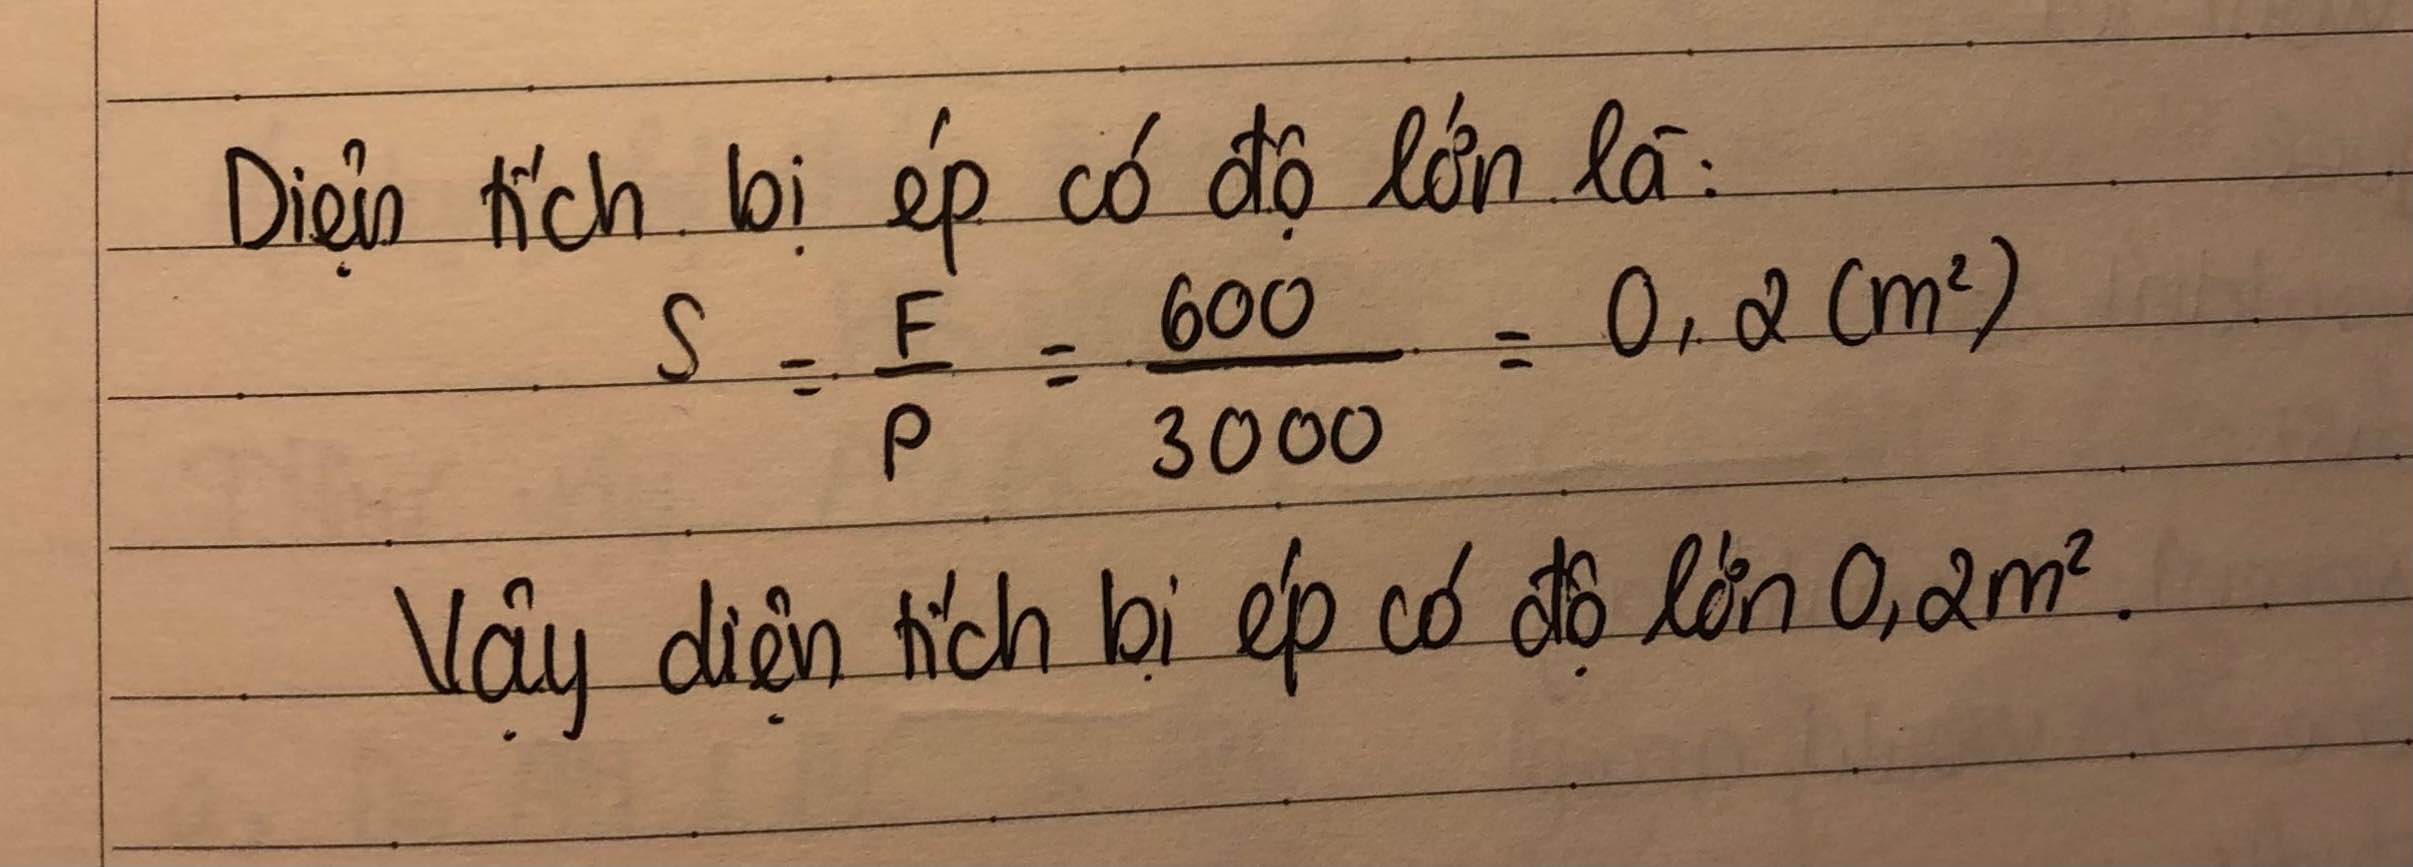 Diện tích bị ép có độ lớn là:
S = F/P = 600/3000 = 0,2 (m²)
Vậy diện tích bị ép có độ lớn 0,2m².